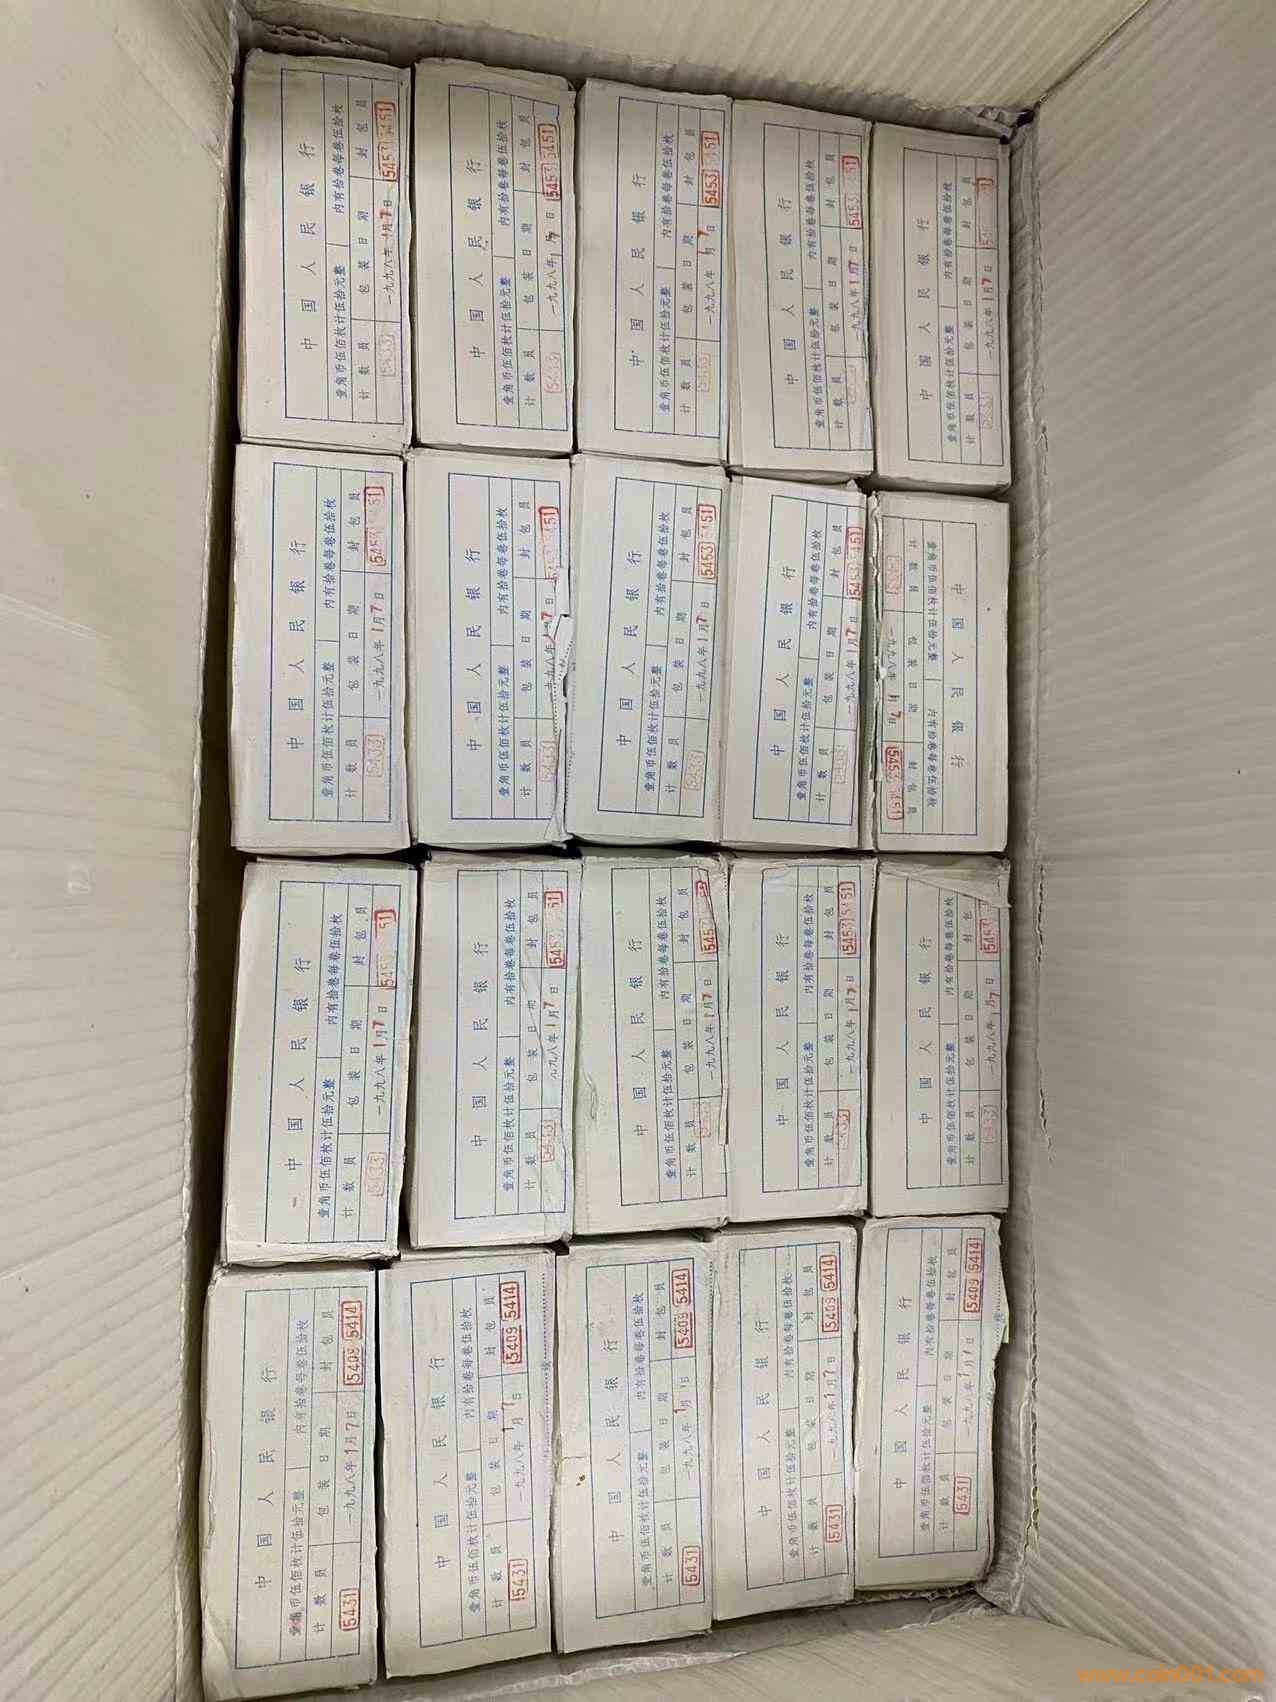 中国人民银行
壹角币伍佰枚计伍拾元整 内有拾卷每卷伍拾枚
计数员 包装日期 封包员
5433 一九九八年1月7日 5453 5451
中国人民银行
壹角币伍佰枚计伍拾元整 内有拾卷每卷伍拾枚
计数员 包装日期 封包员
5433 一九九八年1月7日 5453 5451
中国人民银行
壹角币伍佰枚计伍拾元整 内有拾卷每卷伍拾枚
计数员 包装日期 封包员
5433 一九九八年1月7日 5453 5451
中国人民银行
壹角币伍佰枚计伍拾元整 内有拾卷每卷伍拾枚
计数员 包装日期 封包员
一九九八年1月7日 5453 51
中国人民银行
壹角币伍佰枚计伍拾元整 内有拾卷每卷伍拾枚
计数员 包装日期 封包员
5433 一九九八年1月7日
中国人民银行
壹角币伍佰枚计伍拾元整 内有拾卷每卷伍拾枚
计数员 包装日期 封包员
5433 一九九八年1月7日 5453 51
中国人民银行
壹角币伍佰枚计伍拾元整 内有拾卷每卷伍拾枚
计数员 包装日期 封包员
5433 一九九八年 7日 51
中国人民银行
壹角币伍佰枚计伍拾元整 内有拾卷每卷伍拾枚
计数员 包装日期 封包员
5433 一九九八年1月7日 5453 5451
中国人民银行
壹角币伍佰枚计伍拾元整 内有拾卷每卷伍拾枚
计数员 包装日期 封包员
5433 一九九八年1月7日 5453 5451
中国人民银行
壹角币伍佰枚计伍拾元整 内有拾卷每卷伍拾枚
计数员 包装日期 封包员
一九九八年 月7日 5453 5451
中国人民银行
壹角币伍佰枚计伍拾元整 内有拾卷每卷伍拾枚
计数员 包装日期 封包员
5433 一九九八年1月7日 5453 51
中国人民银行
壹角币伍佰枚计伍拾元整 内有拾卷每卷伍拾枚
计数员 包装日期 封包员
5433 九八年1月7日 5453 51
中国人民银行
壹角币伍佰枚计伍拾元整 内有拾卷每卷伍拾枚
计数员 包装日期 封包员
一九九八年1月7日 545
中国人民银行
壹角币伍佰枚计伍拾元整 内有拾卷每卷伍拾枚
计数员 包装日期 封包员
5433 一九九八年1月7日 5453 5451
中国人民银行
壹角币伍佰枚计伍拾元整 内有拾卷每卷伍拾枚
计数员 包装日期 封包
5433 一九九八年1月7日 5453
中国人民银行
壹角币伍佰枚计伍拾元整 内有拾卷每卷伍拾枚
计数员 包装日期 封包员
5431 一九九八年1月7日 5409 5414
中国人民银行
壹角币伍佰枚计伍拾元整 内有拾卷每卷伍拾枚
计数员 包装日期 封包员
5431 一九九八年1月 日 5409 5414
中国人民银行
壹角币伍佰枚计伍拾元整 内有拾卷每卷伍拾枚
计数员 包装日期 封包员
5431 一九九八年1月 日 5409 5414
中国人民银行
壹角币伍佰枚计伍拾元整 内有拾卷每卷伍拾枚
计数员 包装日期 封包员
5431 一九九八年1月7日 5409 5414
中国人民银行
壹角币伍佰枚计伍拾元整 内有拾卷每卷伍拾枚
计数员 包装日期 封包员
5431 一九九八年1月7日 5409 5414
www.coin001.com